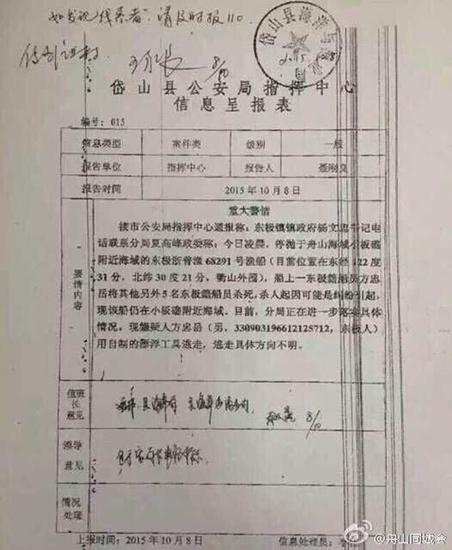 如发现线索者，请及时报110.
8/10
岱山县海洋与
岱山县公安局指挥中心
信息呈报表
编号：015
信息类型 案件类 级别 一般
报告单位 指挥中心 报告人
报告时间 2015年10月8日
重大警情
要情内容
接市公安局指挥中心通报称：东极镇镇政府杨文忠书记
电话联系分局夏高峰政委称：今日凌晨，停抛于舟山海域小板礁
附近海域的东极浙普渔68291号渔船（目前位置在东经122度
31分，北纬30度21分，衢山外围），船上一东极籍船员方忠
岳将其他另外5名东极籍船员杀死，杀人起因可能是纠纷引起，
现该船仍在小板礁附近海域。目前，分局正在进一步落实具体
情况。现嫌疑人方忠岳（男，330903196612125712，东极人）
用自制的漂浮工具逃走，逃走具体方向不明。
值班长意见
8/10
领导意见
情况处理
上报时间：2015年10月8日 信息处理员：
@舟山同城会